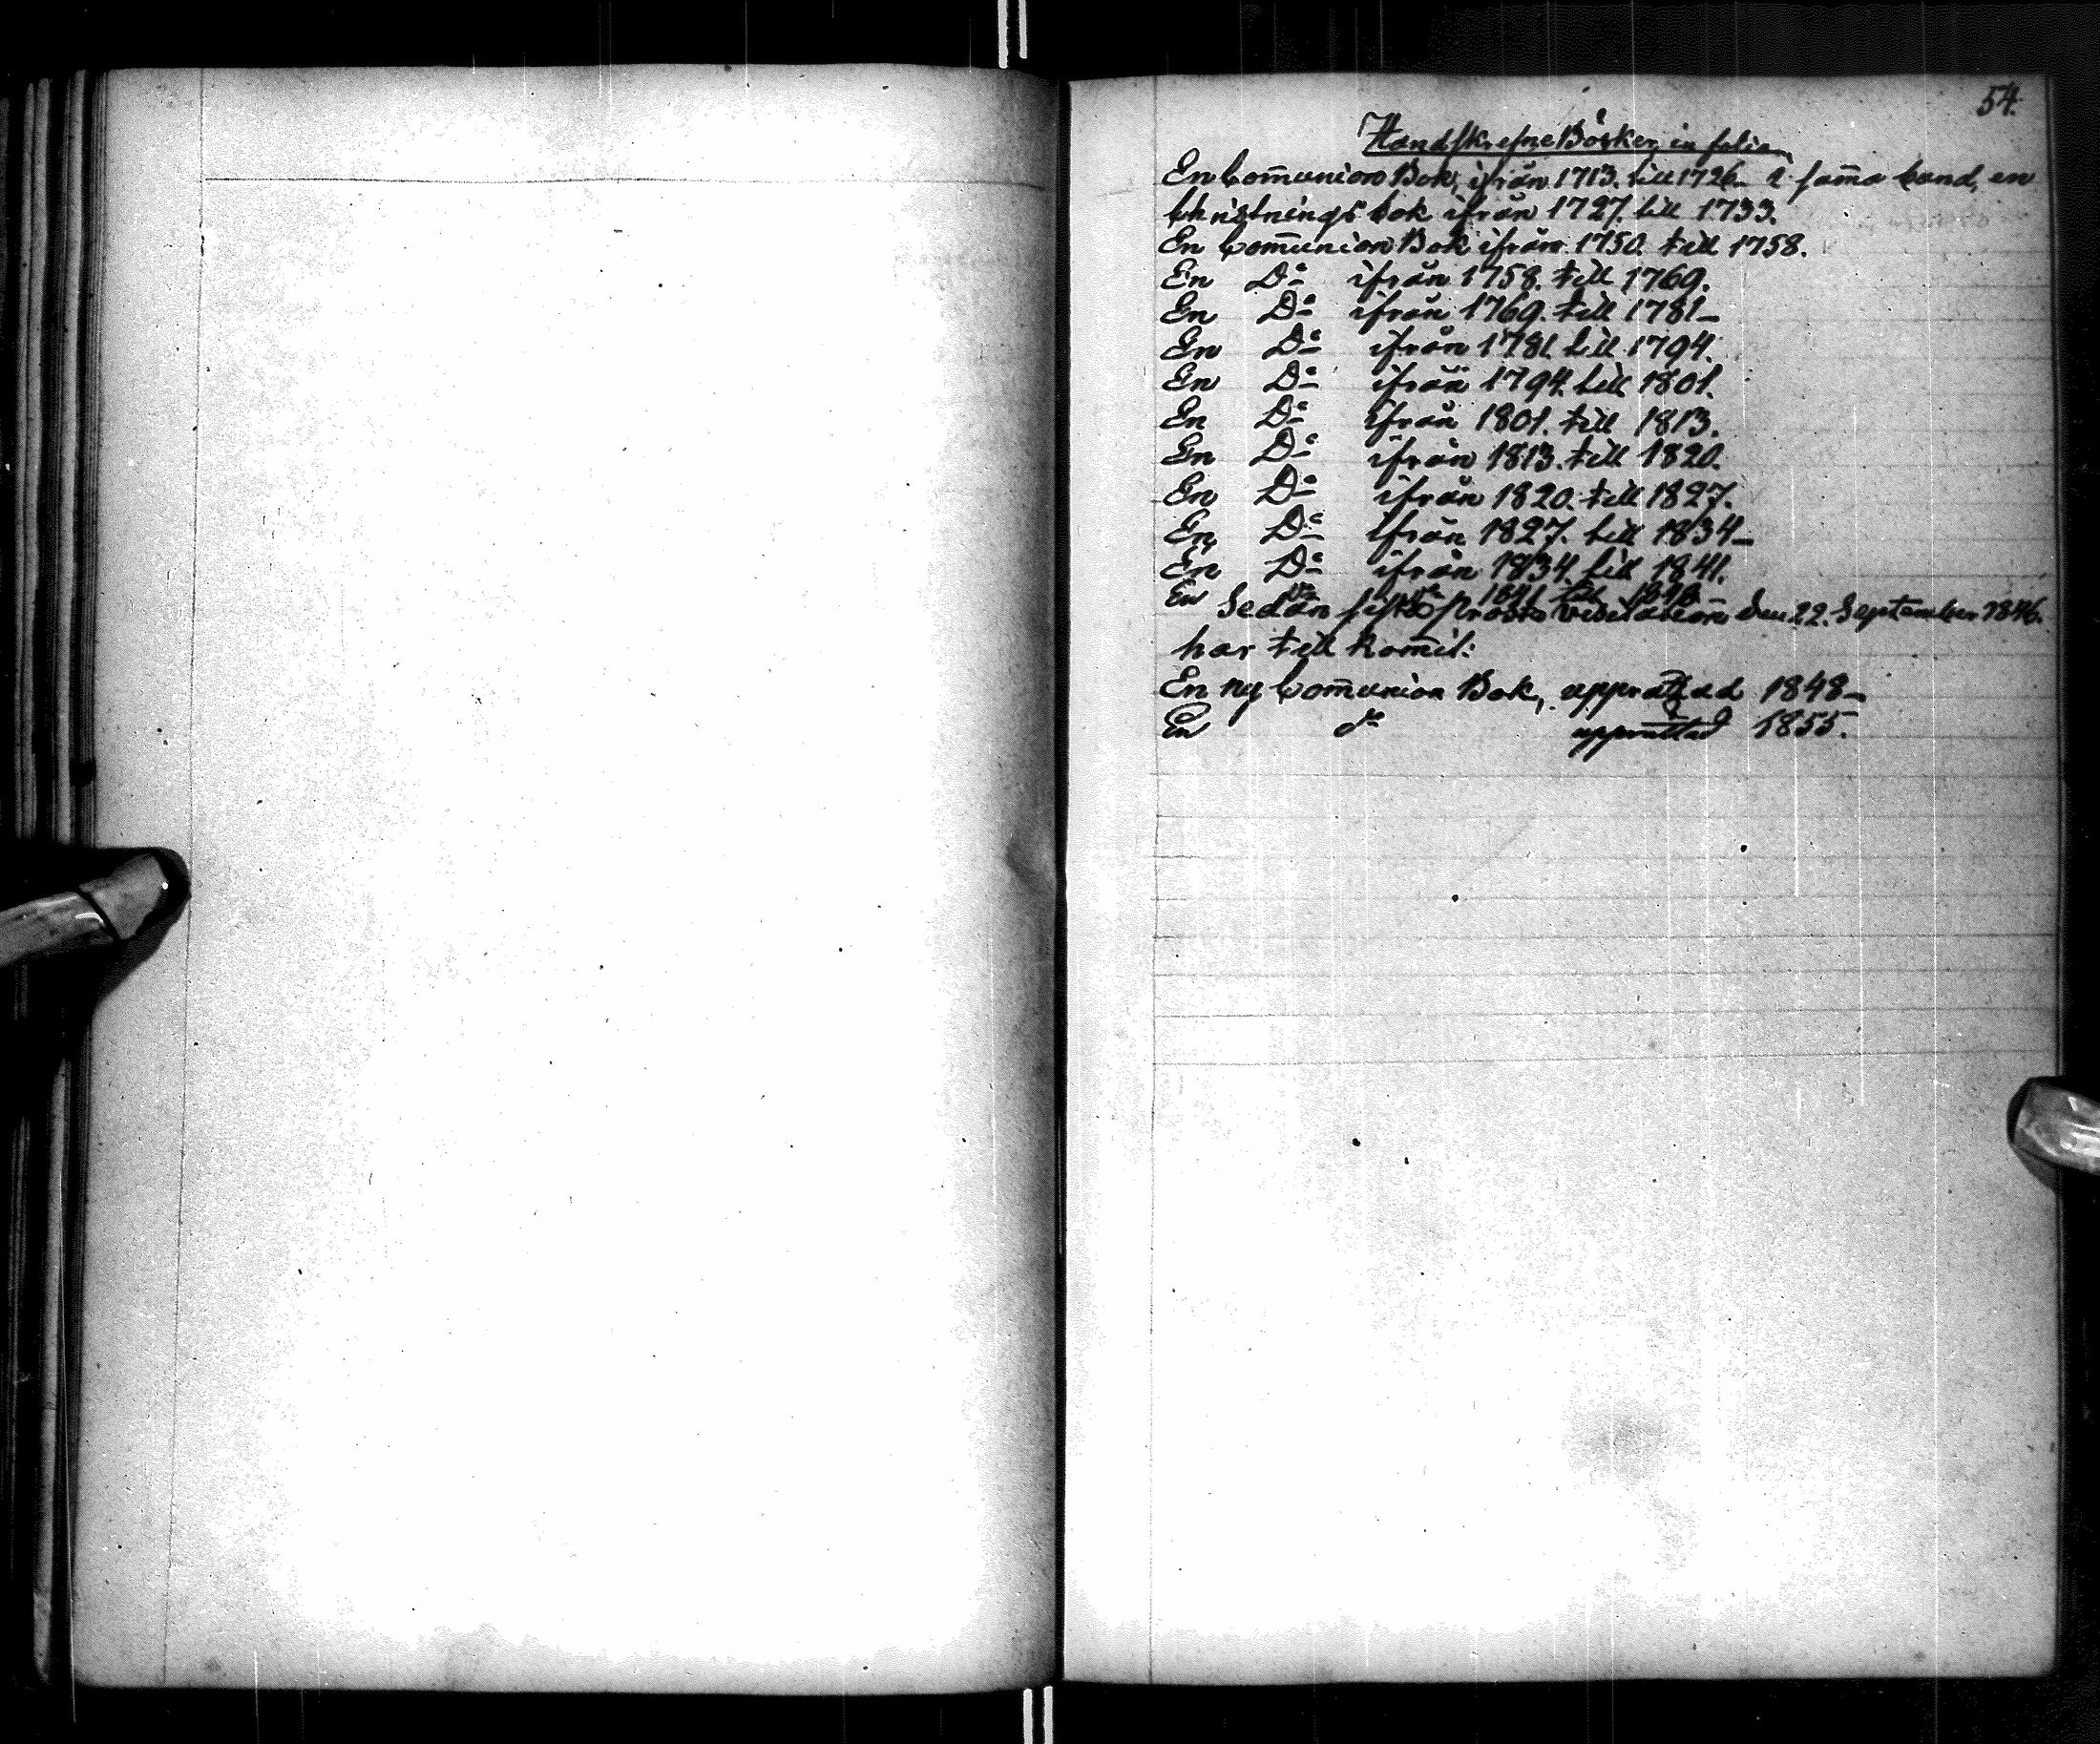 54.
Handskrefne Böcker, in folio
En Com̄union Bok, ifrån 1713. till 1726. i sam̄a band, en
Christnings bok ifrån 1727. till 1733.
En Com̄union Bok ifrån 1750. till 1758.
En Do ifrån 1758. till 1769.
En Do ifrån 1769. till 1781.
En Do ifrån 1781. till 1794.
En Do ifrån 1794. till 1801.
En Do ifrån 1801. till 1813.
En Do ifrån 1813. till 1820.
En Do ifrån 1820. till 1827.
En Do ifrån 1827. till 1834.
En Do ifrån 1834. till 1841.
En do do 1841 till
Sedan sista Prosts visitation den 22. September 1846.
har till kom̄it:
En ny Com̄union Bok, upprättad 1848.
En do upprättad 1855.